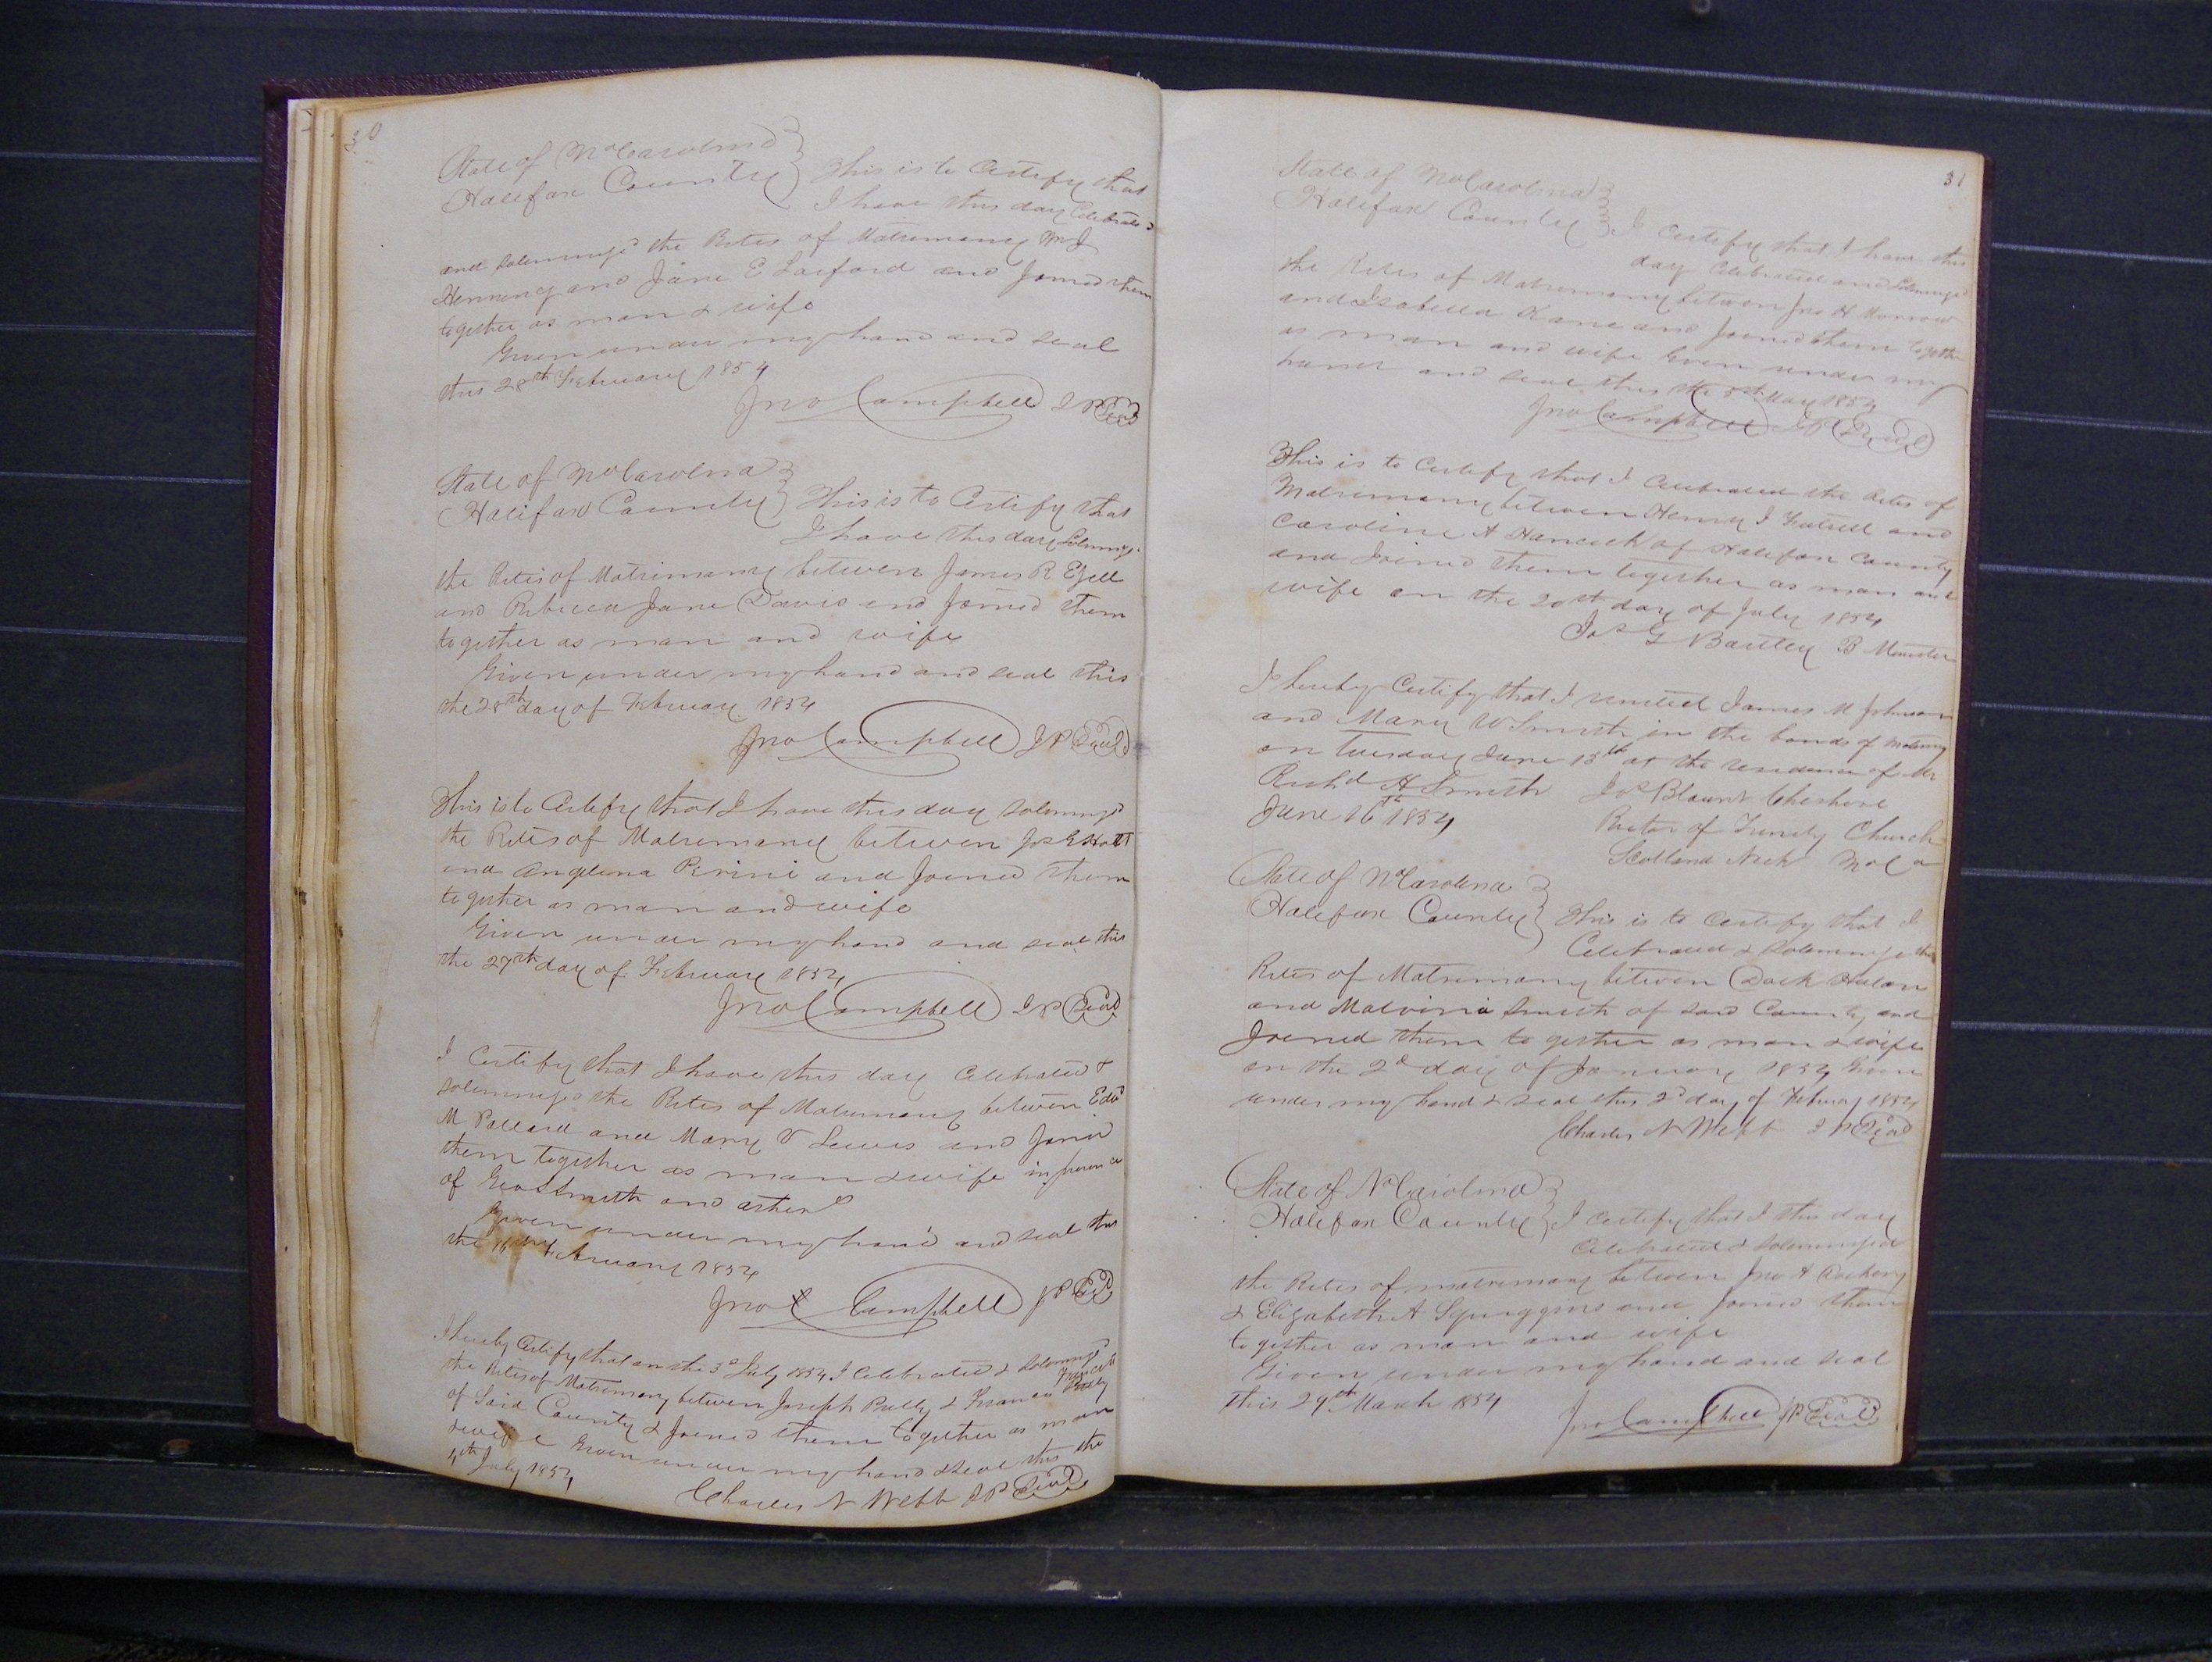 30
State of No Carolina
Halifax County } This is to Certify that
I have this day Celebrated
and solemnized the Rites of Matrimony Wm J
Henning and Jane E Larford and Joined them
together as man & wife
Given under my hand and seal
this 28th February 1854
Jno Campbell JP Seal
State of No Carolina
Halifax County } This is to Certify that
I have this day Solemnized
the Rites of Matrimony between James R Ezell
and Rebecca Jane Davis and Joined them
together as man and wife
Given under my hand and seal this
the 28th day of February 1854
Jno Campbell JP Seal
This is to Certify that I have this day solemnized
the Rites of Matrimony between Jos E Hott
and Angelina Perini and Joined them
together as man and wife
Given under my hand and seal this
the 27th day of February 1854
Jno Campbell JP Seal
I Certify that I have this day Celebrated &
solemnized the Rites of Matrimony between Edwd
M Pollard and Mary V Lewis and Joined
them together as man & wife in presence
of Geo Smith and others
Given under my hand and seal this
the 16th February 1854
Jno Campbell JP Seal
I hereby Certify that on the 3d July 1854 I Celebrated & Solemnized
the Rites of Matrimony between Joseph Pully & Frances
of Said County & Joined them together as man
& wife Given under my hand & seal this the
4th July 1854
Charles N Webb JP Seal
31
State of No Carolina
Halifax County } I Certify that I have this
day Celebrated and Solemnized
the Rites of Matrimony between Jno H Morrow
and Isabella Kane and Joined them together
as man and wife Given under my
hand and seal this the 8th May 1854
Jno Campbell JP Seal
This is to Certify that I Celebrated the Rites of
Matrimony between Henry J Futrell and
Caroline A Hancock of Halifax County
and Joined them together as man and
wife on the 20th day of July 1854
Jos G Bartley B Minister
I hereby Certify that I united James M Johnson
and Mary W Smith in the bonds of matrimony
on Tuesday June 13th at the residence of Mr
Richd H Smith Jos Blount Cheshire
June 16th 1854 Rector of Trinity Church
Scotland Neck No Ca
State of No Carolina
Halifax County } This is to Certify that I
Celebrated & Solemnized the
Rites of Matrimony between Dack
and Malvinia Smith of said County and
Joined them together as man & wife
on the 2d day of January 1854 Given
under my hand & seal this 2d day of February 1854
Charles N Webb JP Seal
State of No Carolina
Halifax County } I Certify that I this day
Celebrated & solemnized
the Rites of matrimony between Jno A Dockery
& Elizabeth A Squiggins and Joined them
together as man and wife
Given under my hand and seal
this 29th March 1854
Jno Campbell JP Seal